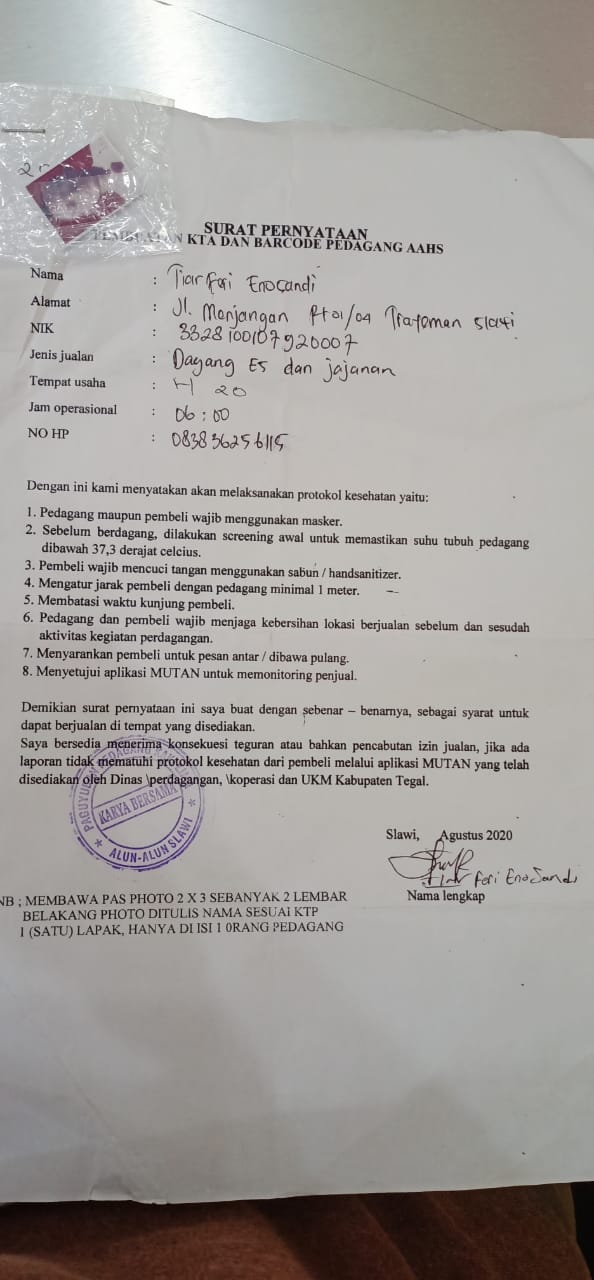 SURAT PERNYATAAN
KTA DAN BARCODE PEDAGANG AAHS
Nama : Tiar feri Enosandi
Alamat : Jl. Menjangan Rt 01/04 Trayeman Slawi
NIK : 3328100107920007
Jenis jualan : Dagang ES dan jajanan
Tempat usaha : H 20
Jam operasional : 06 : 00
NO HP : 083836256115
Dengan ini kami menyatakan akan melaksanakan protokol kesehatan yaitu:
1. Pedagang maupun pembeli wajib menggunakan masker.
2. Sebelum berdagang, dilakukan screening awal untuk memastikan suhu tubuh pedagang
dibawah 37,3 derajat celcius.
3. Pembeli wajib mencuci tangan menggunakan sabun / handsanitizer.
4. Mengatur jarak pembeli dengan pedagang minimal 1 meter.
5. Membatasi waktu kunjung pembeli.
6. Pedagang dan pembeli wajib menjaga kebersihan lokasi berjualan sebelum dan sesudah
aktivitas kegiatan perdagangan.
7. Menyarankan pembeli untuk pesan antar / dibawa pulang.
8. Menyetujui aplikasi MUTAN untuk memonitoring penjual.
Demikian surat pernyataan ini saya buat dengan sebenar – benarnya, sebagai syarat untuk
dapat berjualan di tempat yang disediakan.
Saya bersedia menerima konsekuesi teguran atau bahkan pencabutan izin jualan, jika ada
laporan tidak mematuhi protokol kesehatan dari pembeli melalui aplikasi MUTAN yang telah
disediakan oleh Dinas \perdagangan, \koperasi dan UKM Kabupaten Tegal.
PAGUYUBAN PEDAGANG
KARYA BERSAMA
ALUN-ALUN SLAWI
Slawi, Agustus 2020
Tiar feri EnoSandi
Nama lengkap
NB ; MEMBAWA PAS PHOTO 2 X 3 SEBANYAK 2 LEMBAR
BELAKANG PHOTO DITULIS NAMA SESUAI KTP
1 (SATU) LAPAK, HANYA DI ISI 1 0RANG PEDAGANG